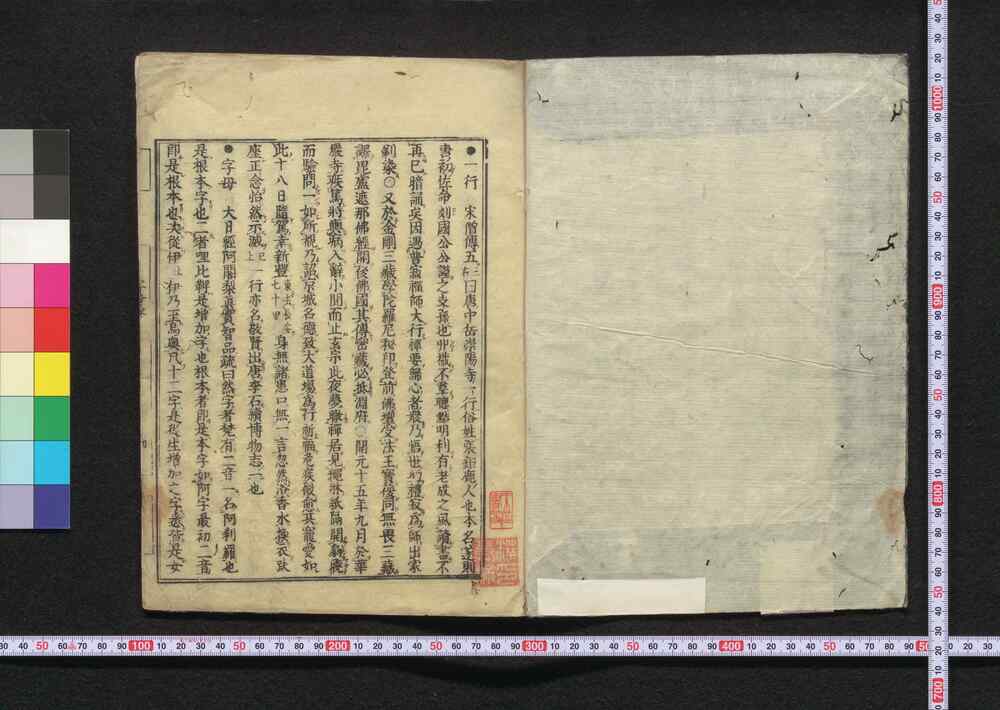 ●一行 宋僧傳五曰唐中岳嵩陽寺一行俗姓張鉅鹿人也本名遂則
唐初佐命剡國公公謹之支孫也丱歲不羣聰黠明利有老成之風讀書不
再已暗誦矣因遇普寂禪師大行禪要歸心者衆乃悟世幻禮寂爲師出家
剃染○又於金剛三藏學陀羅尼秘印登前佛壇受法王寶復同無畏三藏
譯毘盧遮那佛經開後佛國其傳密藏必抵淵府○開元十五年九月於華
嚴寺疾篤將輿病入辭小間而止玄宗此夜夢禪居見繩牀紙隔開扇曉
而驗問一如所覩乃詔京城名德致大道場爲行祈福危疾微愈其寵愛如
此十月八日隨駕幸新豐身無諸患口無一言忽然浴香水換衣趺
座正念怡然示滅 一行亦名敬賢出唐李石續博物志二也
●字母 大日經阿闍梨眞實智品疏曰然字者梵有二音一名阿利羅也
是根本字也二者哩比鞞是增加字也根本者卽是本字如阿字最初二音
卽是根本也夫從伊 伊乃至烏奧凡十二字是從生增加之字悉皆是女